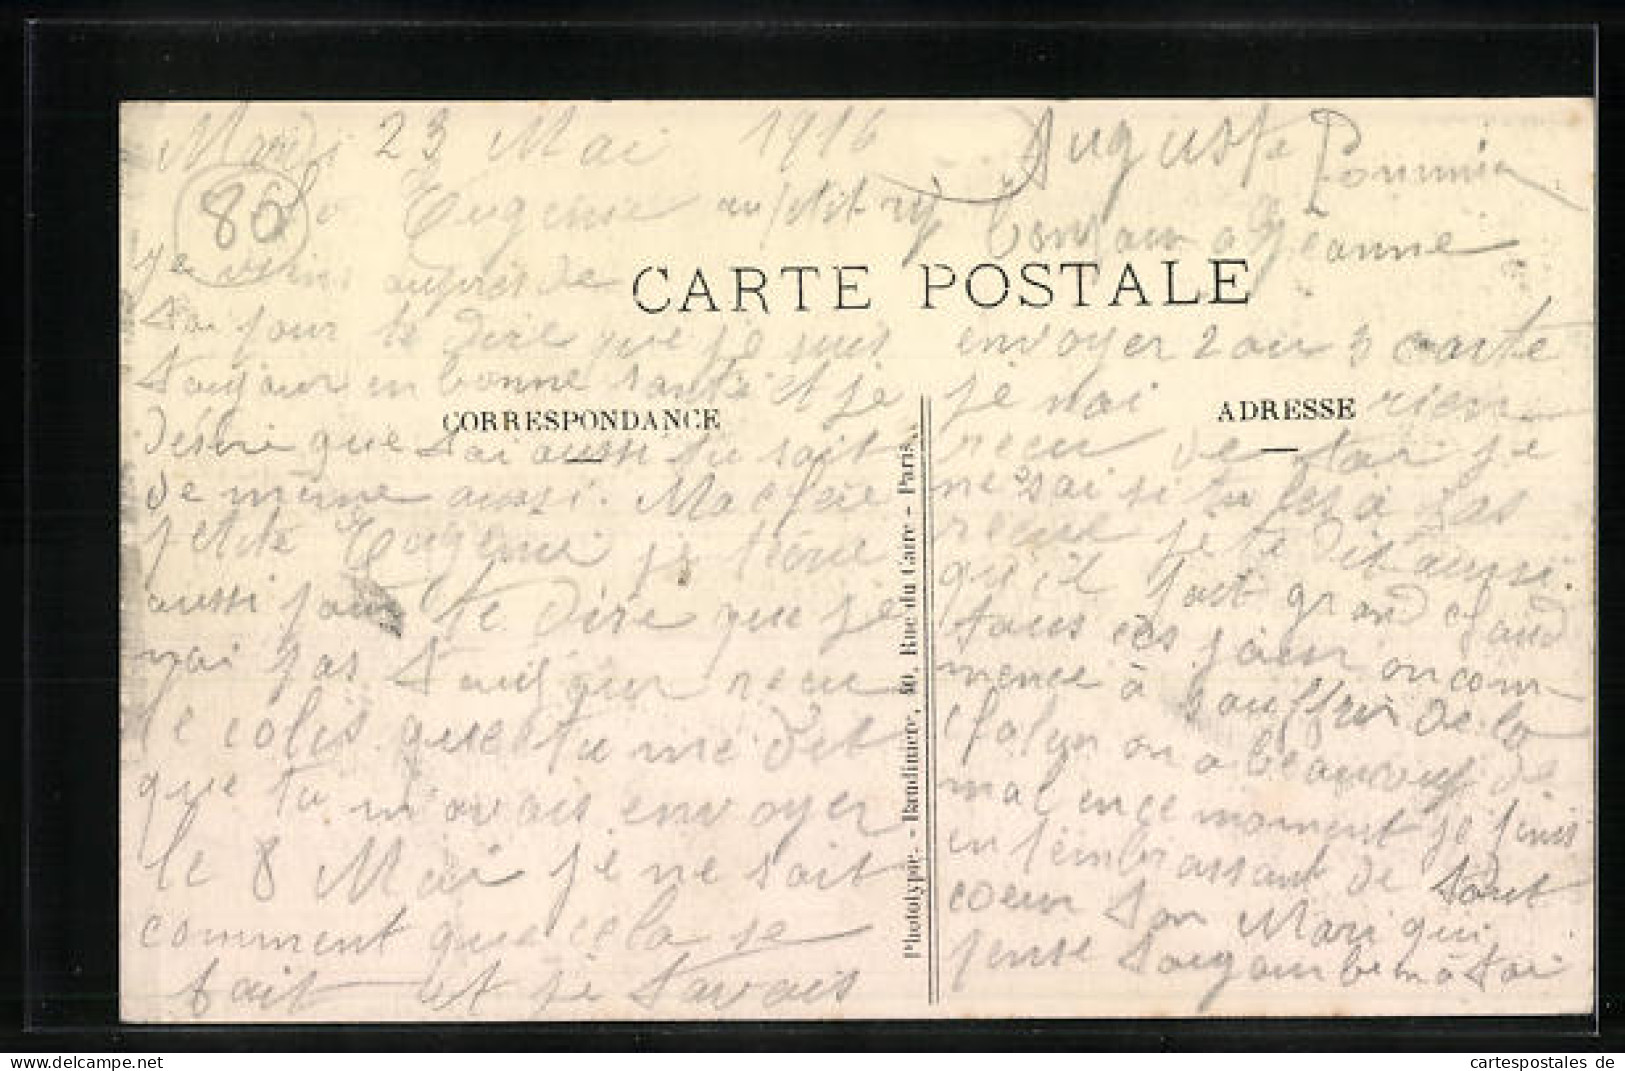 Mardi 23 Mai 1916
86
Eugenie
Auguste Pommier
Bonjour a Jeanne
je viens aupres de
CARTE POSTALE
Toi pour te dire que je suis
Toujour en bonne santé et je
CORRESPONDANCE
désire que Toi aussi tu soit
de même aussi. Ma chère
petite Eugenie je tiens
aussi pour te dire que je
nai pas Toujour recu
le colis que tu me dit
que tu m'avais envoyer
le 8 Mai je ne sait
comment que cela se
fait et je t'avais
Phototypie. - Baudinière, 40, Rue du Caire - Paris.
envoyer 2 ou 3 carte
je nai rien
ADRESSE
recu de toi je
ne sai si tu les à pas
recue je te dit aussi
qu'il fait grand chaud
tous ces jour on com
mence à souffrir de la
chaleur on a beaucoup de
mal en ce moment je finis
en t'embrassant de tout
coeur Ton Mari qui
pense Toujour bien à Toi
cartespostales de